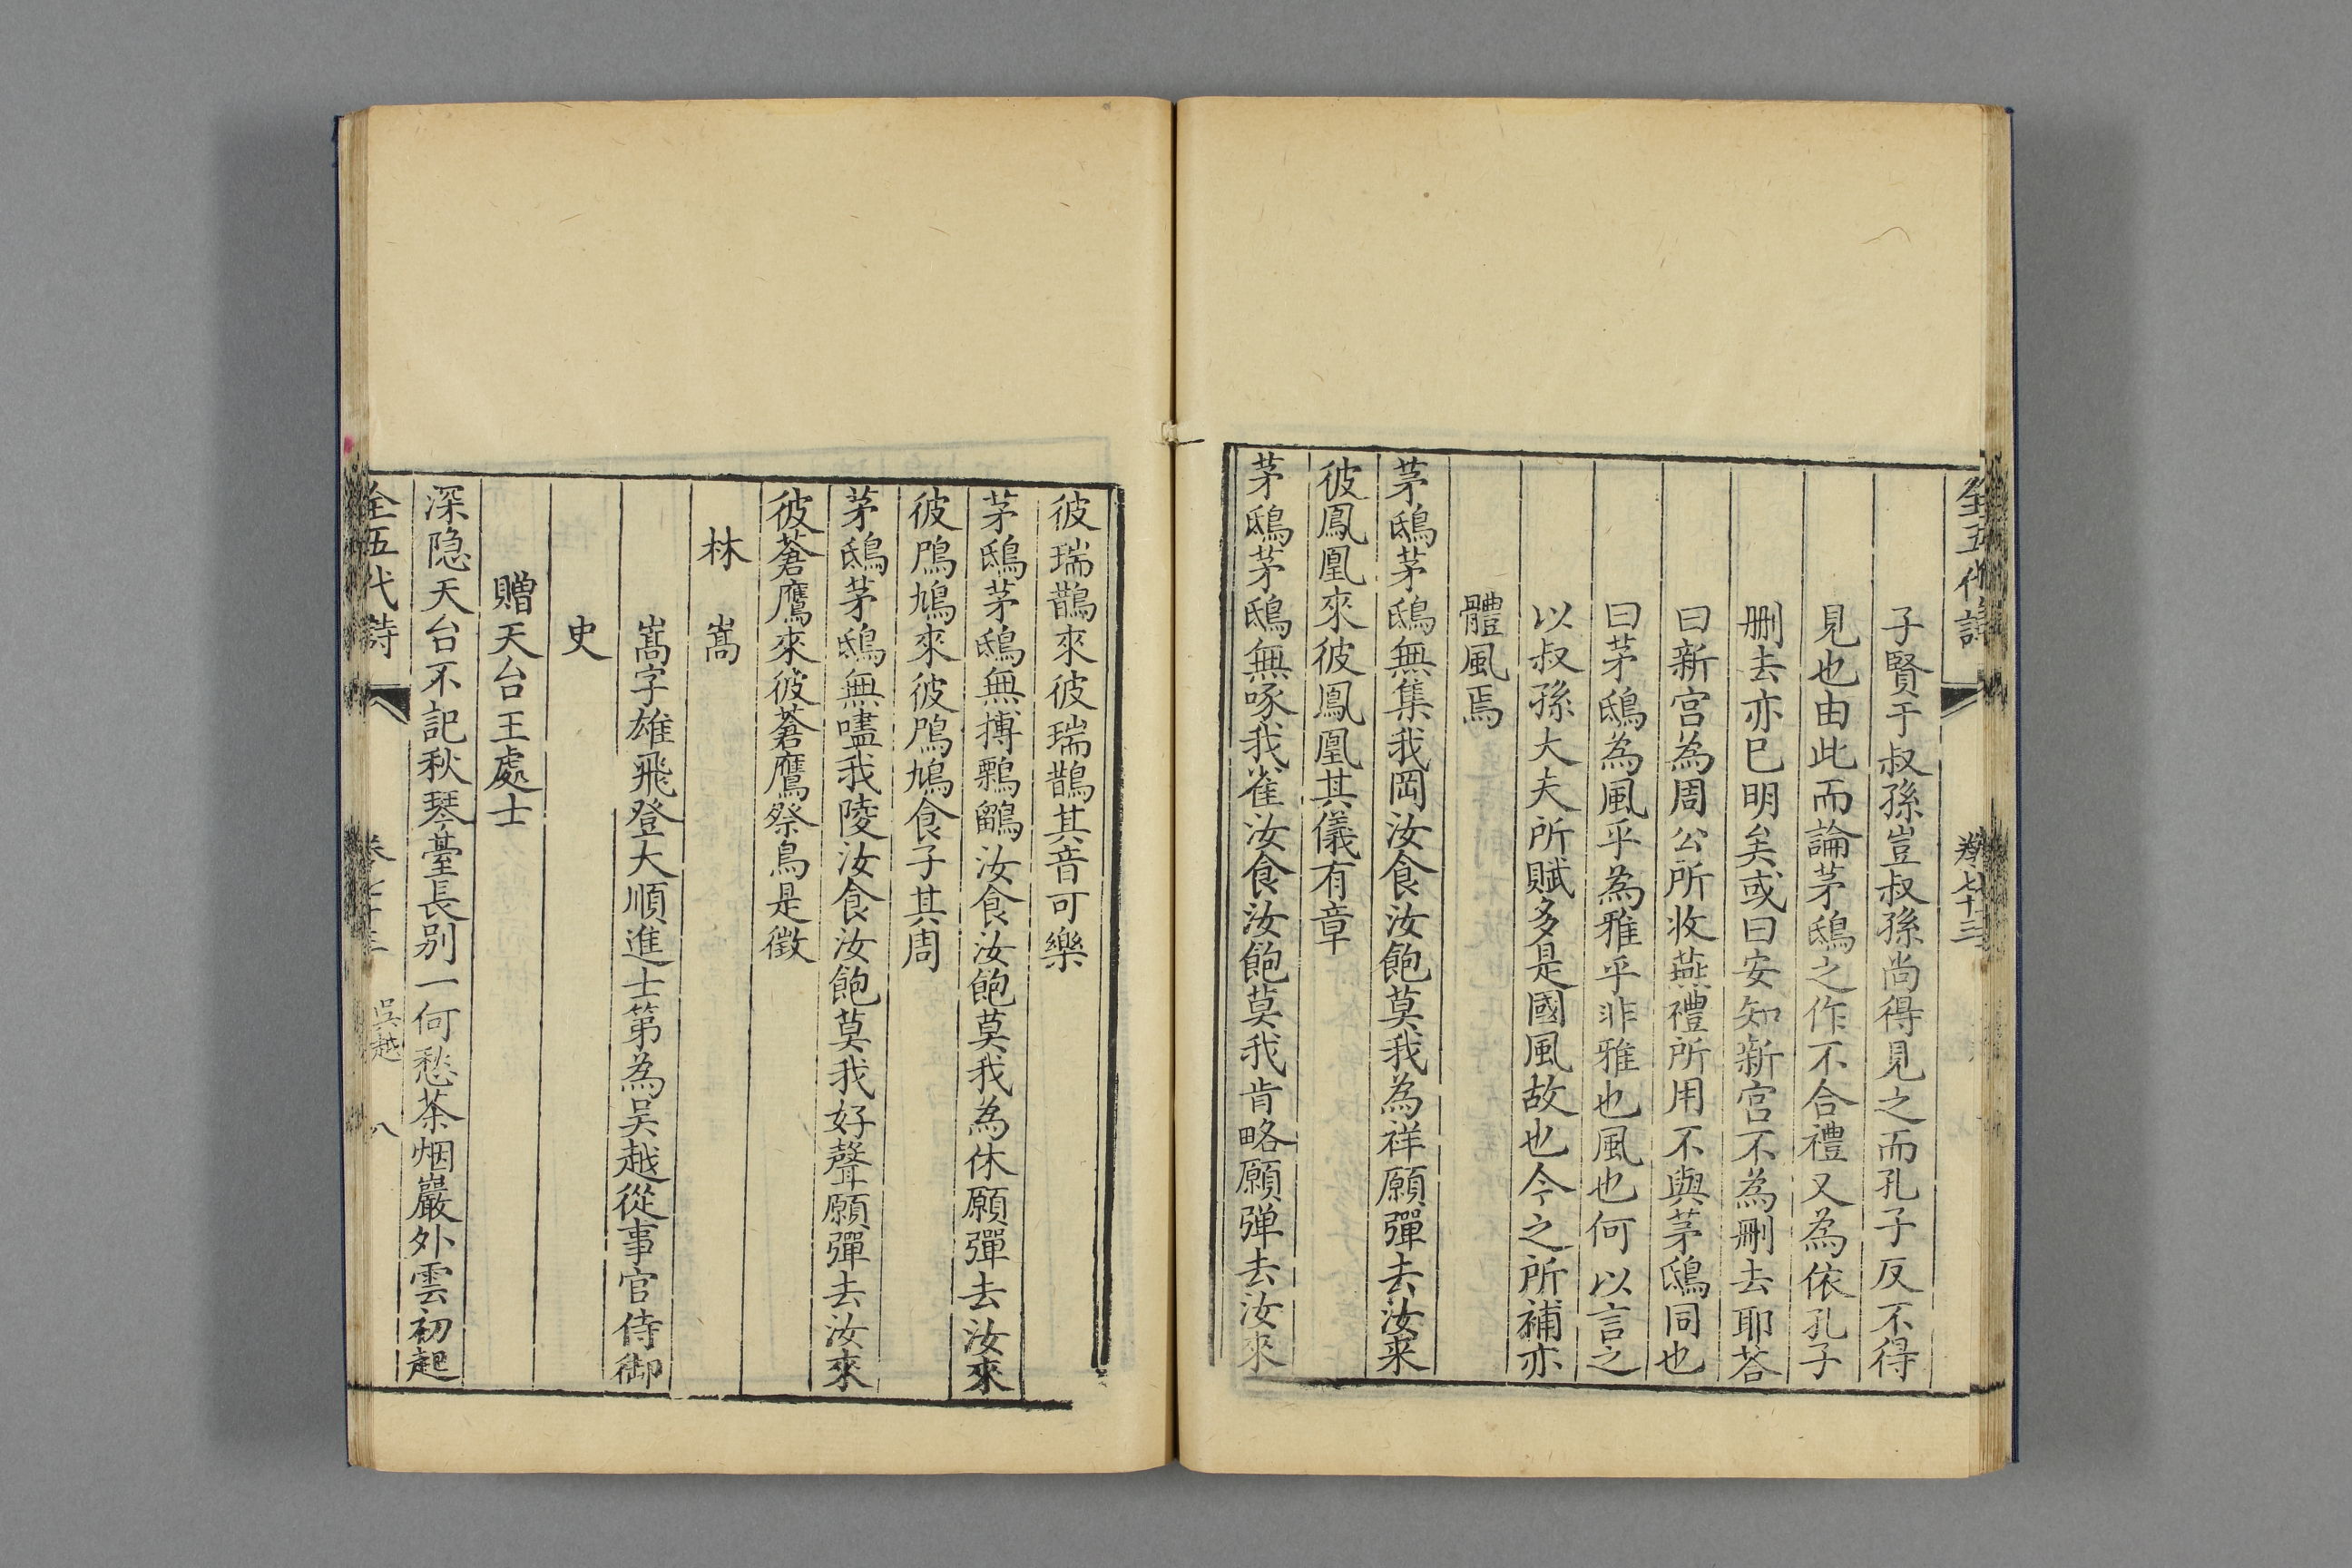 全五代詩 卷七十三
子賢于叔孫豈叔孫尚得見之而孔子反不得
見也由此而論茅鴟之作不合禮又為依孔子
删去亦巳明矣或曰安知新宫不為删去耶荅
曰新宫為周公所收燕禮所用不與茅鴟同也
曰茅鴟為風乎為雅乎非雅也風也何以言之
以叔孫大夫所賦多是國風故也今之所補亦
體風焉
茅鴟茅鴟無集我岡汝食汝飽莫我為祥願彈去汝来
彼鳳凰來彼鳳凰其儀有章
茅鴟茅鴟無啄我雀汝食汝飽莫我肯略願弹去汝來
彼瑞鵲來彼瑞鵲其音可樂
茅鴟茅鴟無搏鷅鶹汝食汝飽莫我為休願彈去汝來
彼鳲鳩來彼鳲鳩食子其周
茅鴟茅鴟無嚍我陵汝食汝飽莫我好聲願彈去汝來
彼蒼鷹來彼蒼鷹祭鳥是徵
林嵩
嵩字雄飛登大順進士第為吴越從事官侍御
史
贈天台王處士
深隐天台不記秋琴臺長别一何愁茶烟巖外雲初起
全五代詩 卷七十三 吳越 八